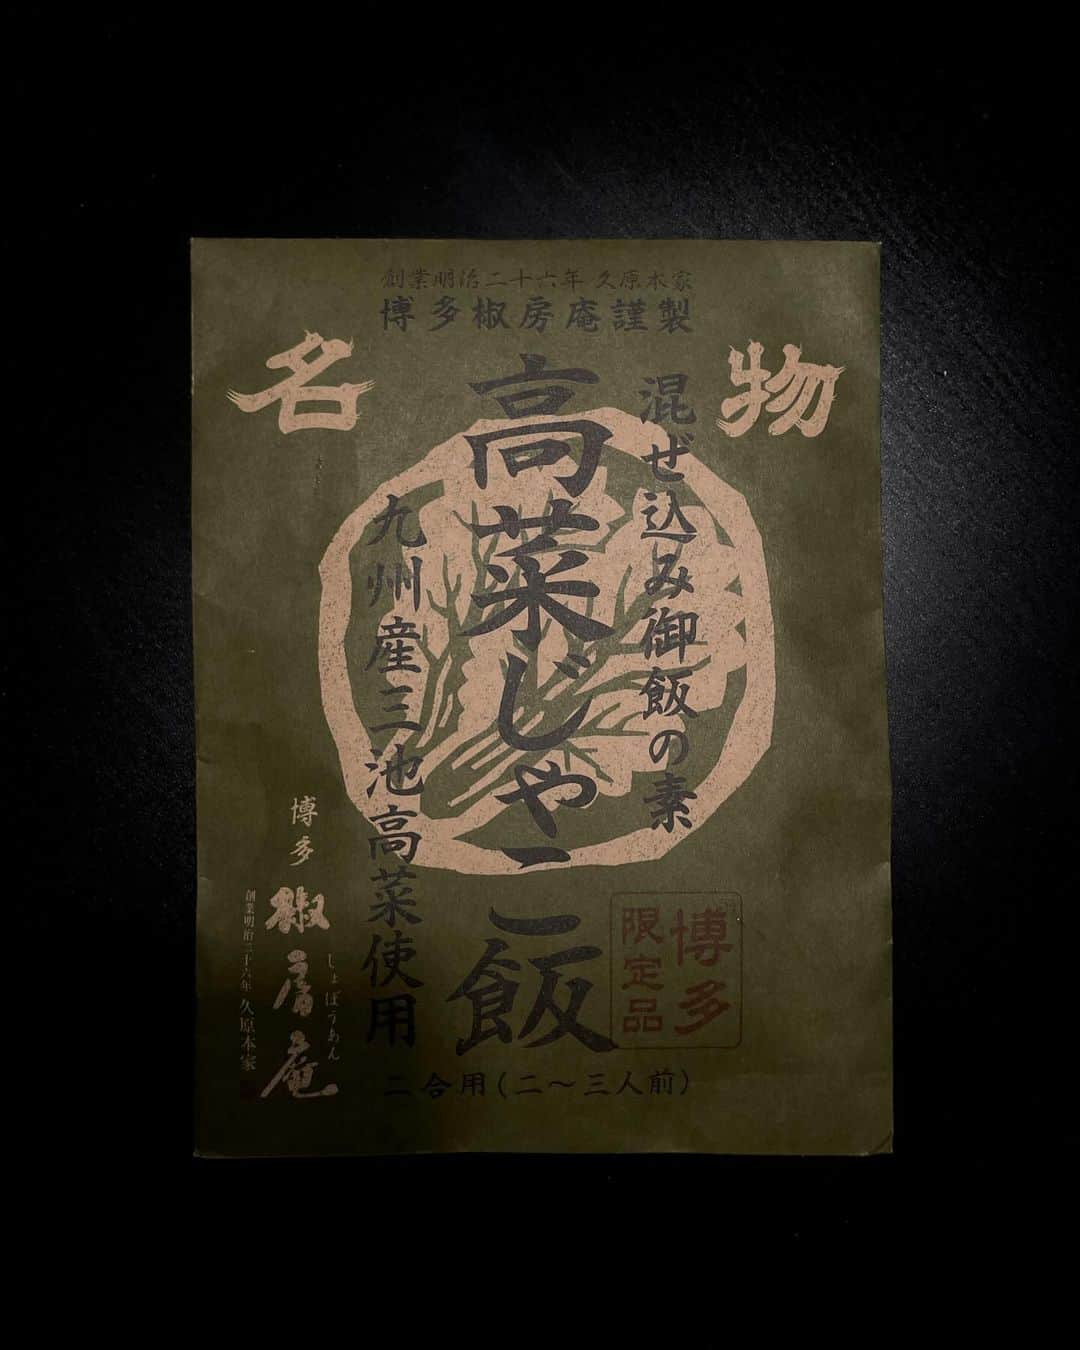 創業明治二十六年 久原本家
博多椒房庵謹製
名物
混ぜ込み御飯の素
高菜じゃこ飯
九州産三池高菜使用
博多
限定品
博多
椒房庵
しょぼうあん
創業明治二十六年 久原本家
二合用(二〜三人前)